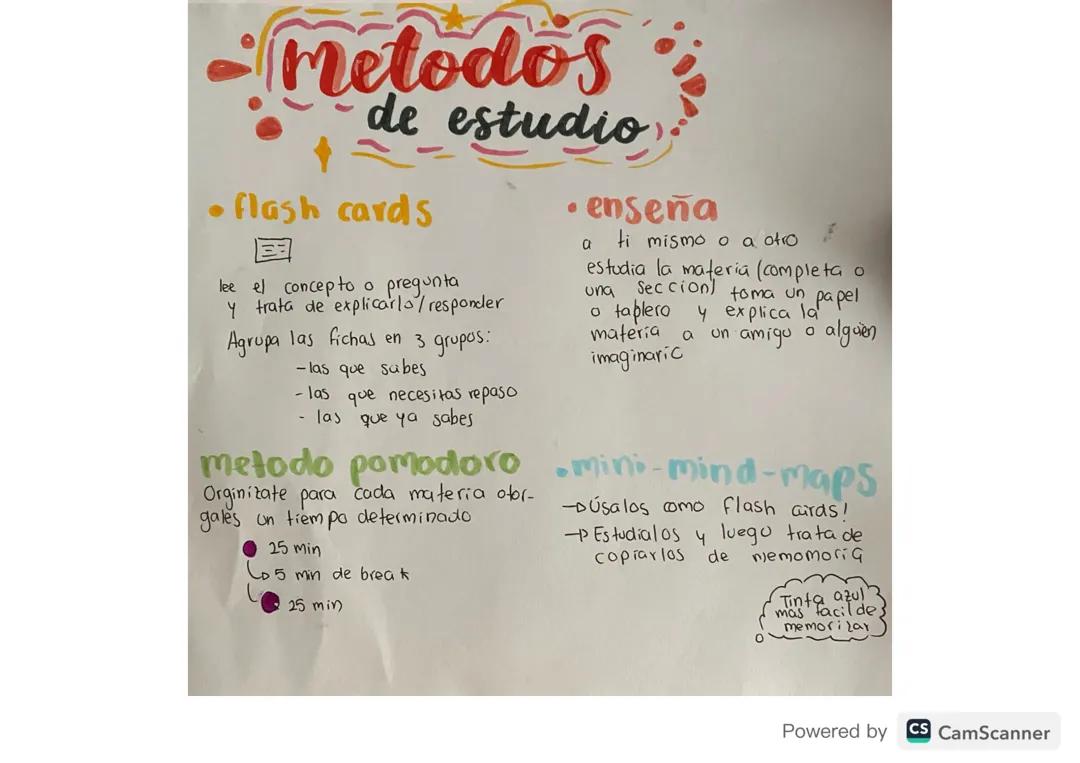 metodos
de estudio
• flash cards
lee el concepto o pregunta
y trata de explicarlo/responder
Agrupa las fichas en 3 grupos:
- las que sabes
- las que necesitas repaso
- las que ya sabes
• enseña
a ti mismo o a otro
estudia la materia (completa o
una sección) toma un papel
o tablero y explica la
materia a un amigo o alguien
imaginario
metodo pomodoro
Orginizate para cada materia otor-
gales un tiempo determinado
25 min
↳ 5 min de break
↳ 25 min
• mini-mind-maps
→ Úsalos como flash cards!
→ Estudialos y luego trata de
copiarlos de memomoria
Tinta azul
mas facil de
memorizar
Powered by CS CamScanner